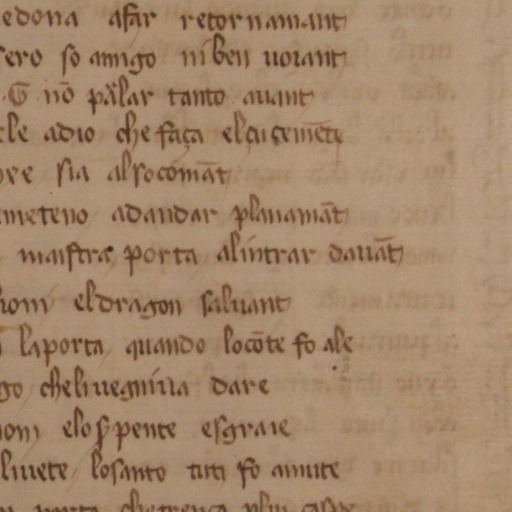 edona afar retornamant
sero so amigo ni ben uoiant
G nō pālar tanto auant
ele adio che faça el çuçemēte
re sia al so comāt
meteno ad andar planamāt
maistra porta al intrar dauāt
lioni el dragon saluant
la porta quando lo cōte fo ale
go che li uegniua dare
lioni elo sp̄pente e sgraie
liuete lo santo tuti fo amute
porta che trença plui